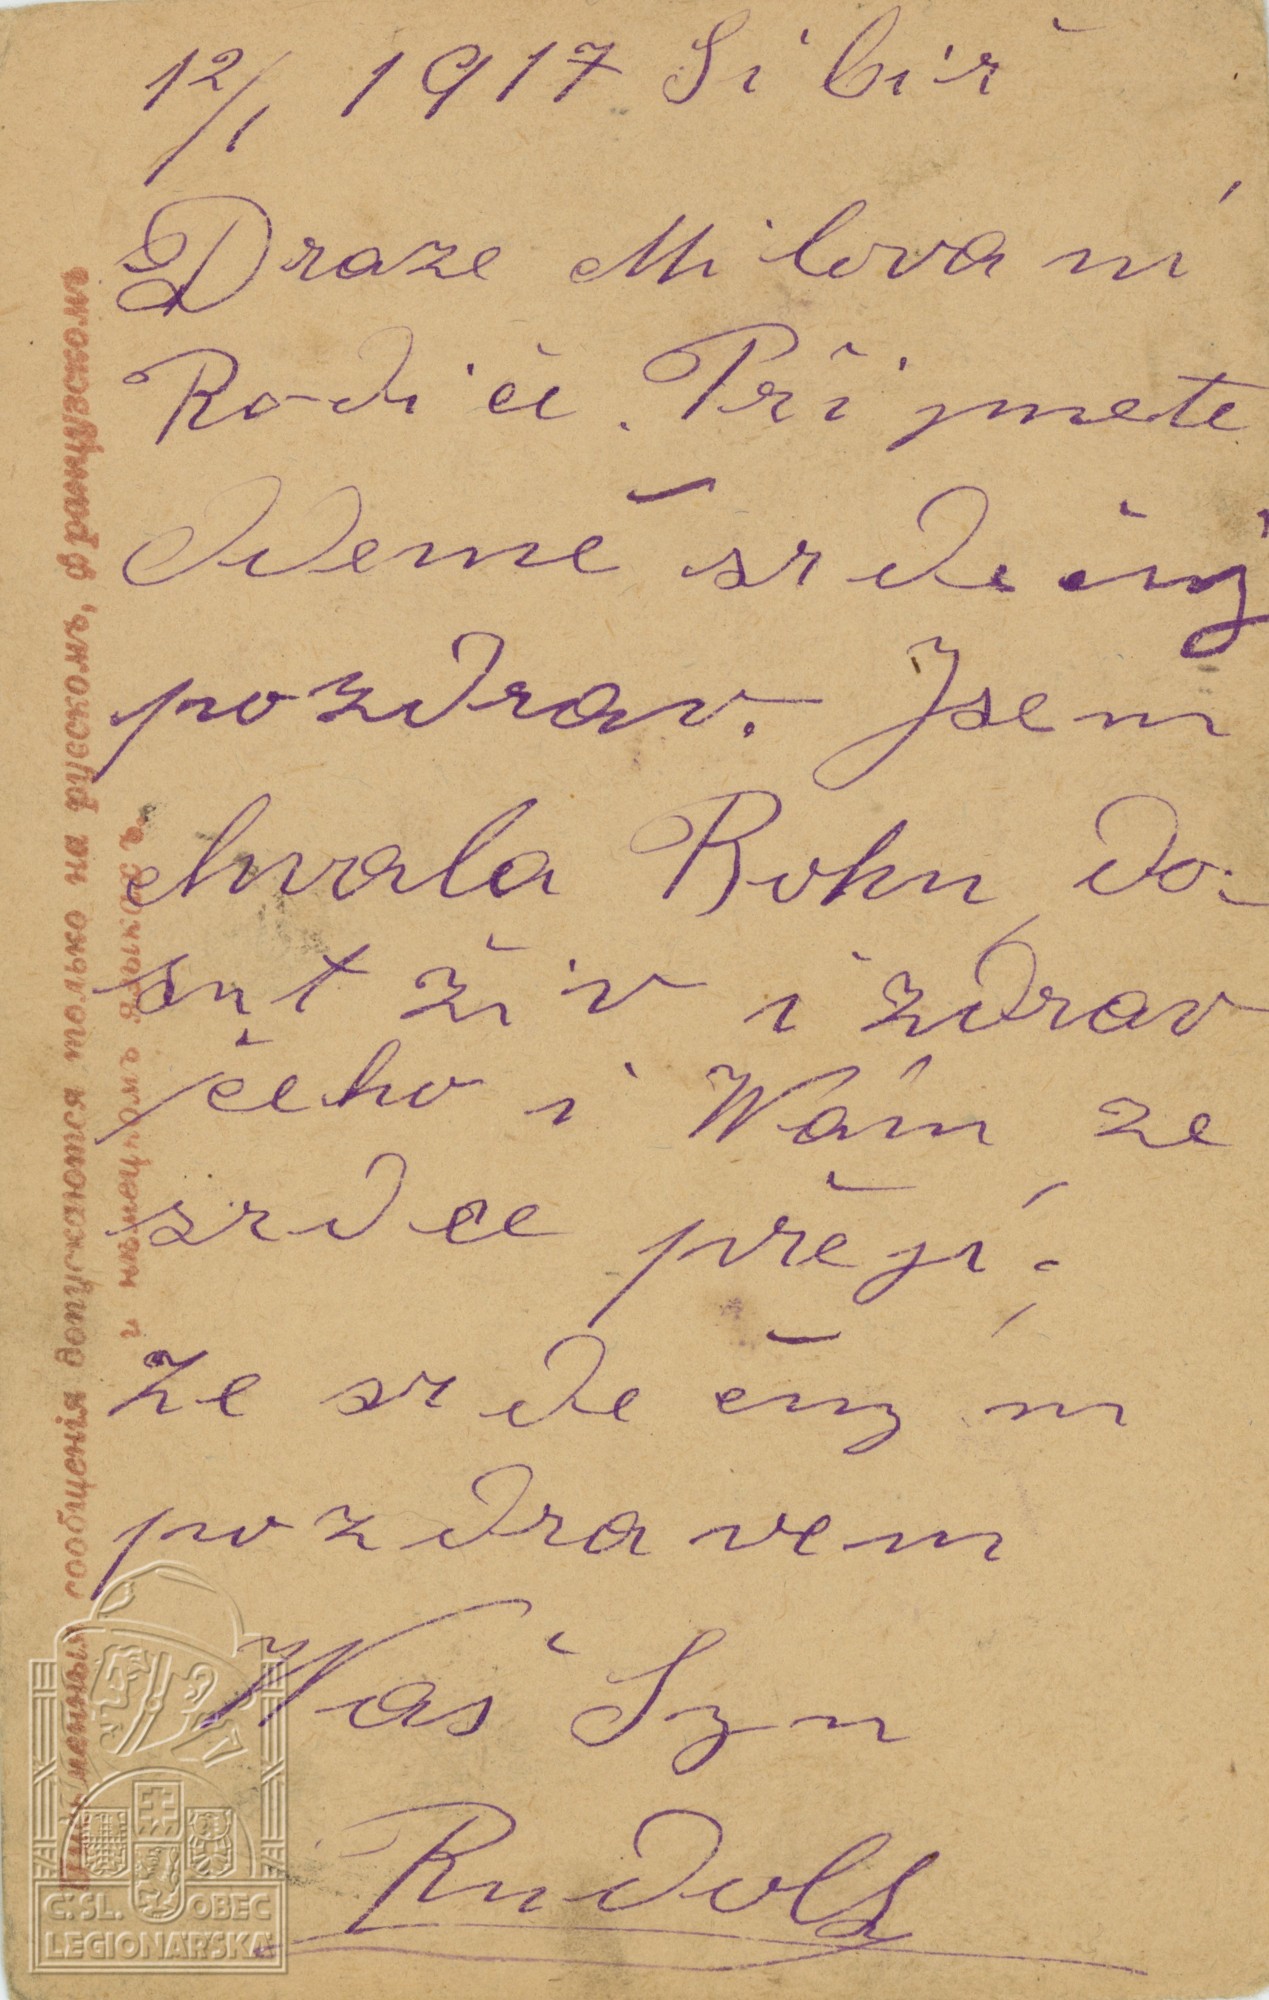 12/1 1917 Sibiř
Draze Milovaní
Rodiče. Přijmete
odemě srdečný
pozdrav. Jsem
chvala Bohu do-
sut živ i zdrav
čeho i Wám ze
srdce přejí.
Ze srdečným
pozdravem
Waš Syn
Rudolf
Письменныя сообщенія допускаются только на русскомъ, французскомъ
и нѣмецкомъ языкахъ.
Č. SL. OBEC
LEGIONÁŘSKÁ